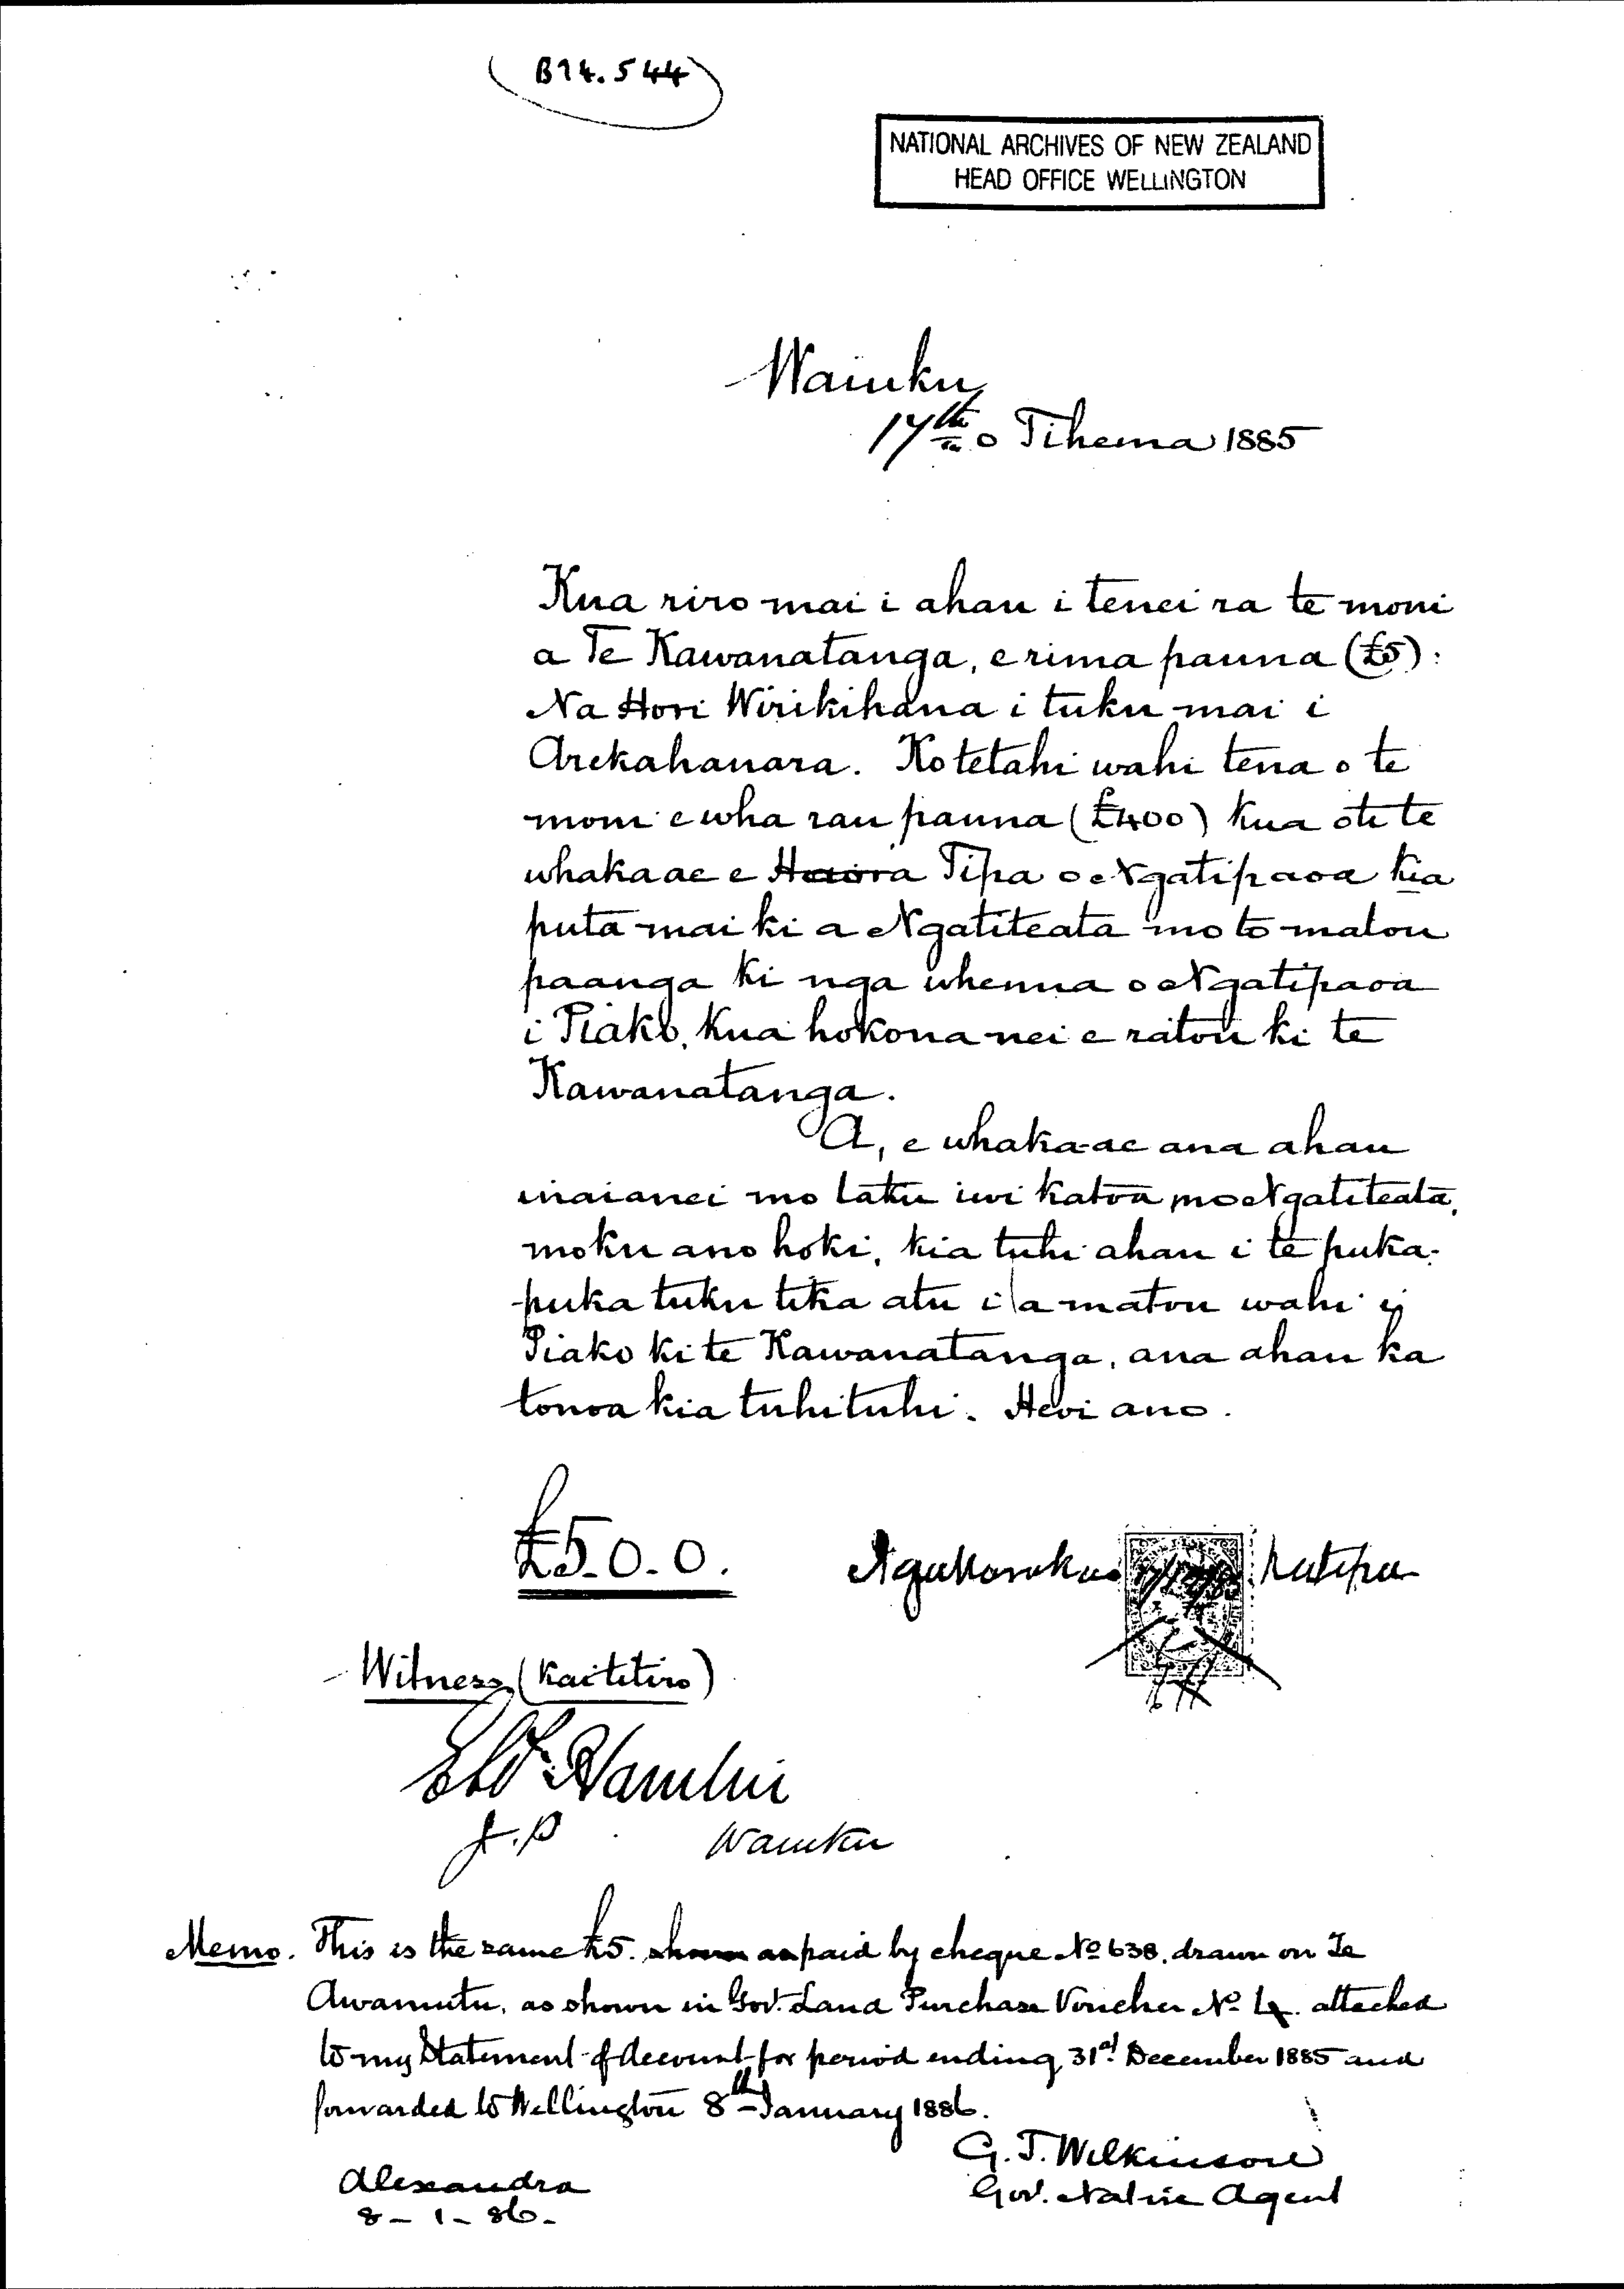 B14.544
NATIONAL ARCHIVES OF NEW ZEALAND
HEAD OFFICE WELLINGTON
Waiuku
17th o Tihema 1885
Kua riro mai i ahau i tenei ra te moni
a Te Kawanatanga, e rima pauna (£5):
Na Hori Wirikihana i tuku mai i
Arekahanara. Ko tetahi wahi tena o te
moni e wha rau pauna (£400) kua oti te
whakaae e Haora Tipa o Ngatipaoa kia
puta mai ki a Ngatiteata mo to matou
paanga ki nga whenua o Ngatipaoa
i Piako, kua hokona nei e ratou ki te
Kawanatanga.
A, e whaka-ae ana ahau
inaianei mo taku iwi katoa mo Ngatiteata,
moku ano hoki, kia tuhi ahau i te puka-
-puka tuku tika atu i a matou wahi i
Piako ki te Kawanatanga, ana ahau ka
tonoa kia tuhituhi. Heoi ano.
£5.0.0. Katipa
Witness (Kaititiro)
Hamlin
J.P Waiuku
Memo. This is the same £5. shown as paid by cheque No 638. drawn on Te
Awamutu, as shown in Gov. Land Purchase Voucher No attached
to my Statement of Account for period ending 31st December 1885 and
forwarded to Wellington 8th January 1886.
G. T. Wilkinson
Gov. Native Agent
Alexandra
8-1-86-